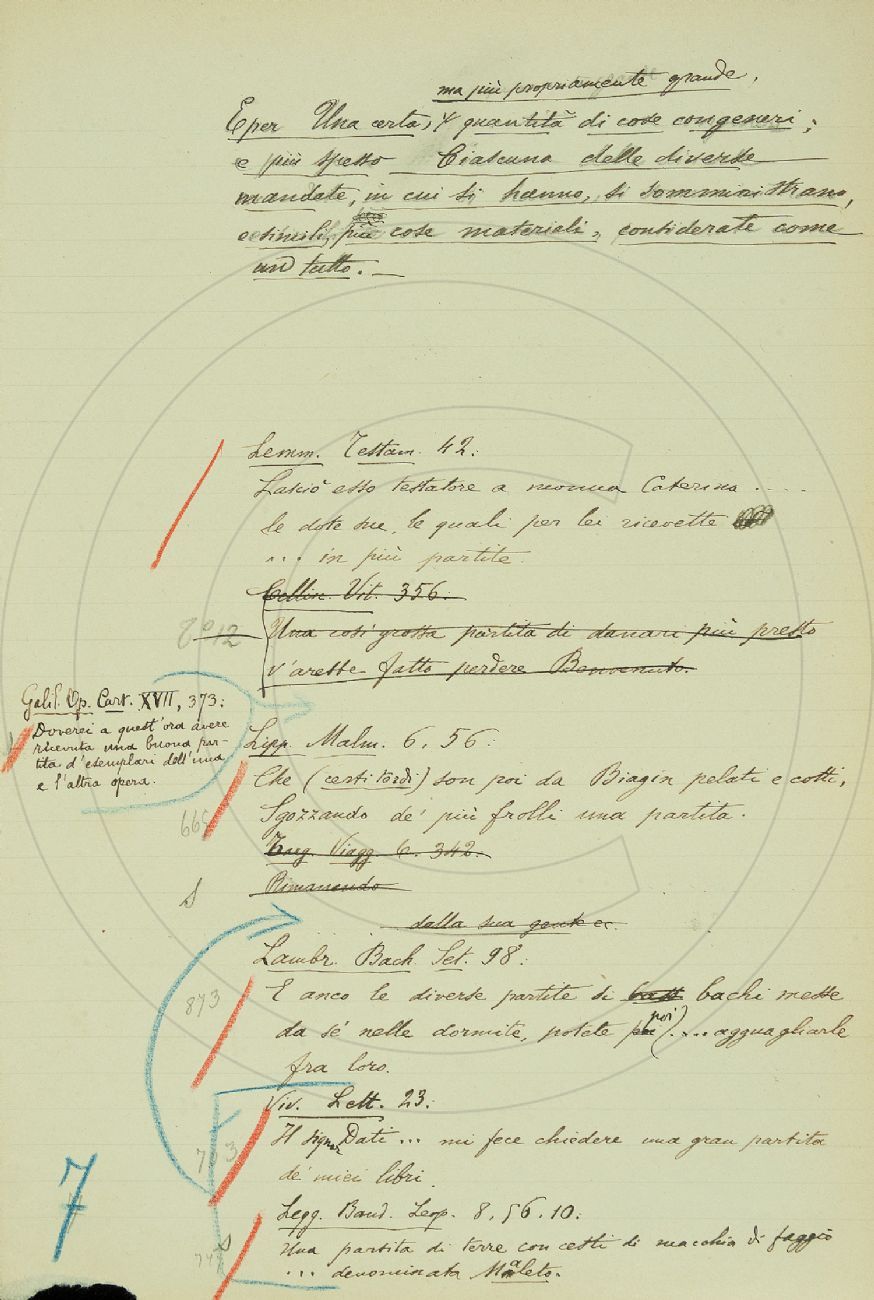 ma più propriamente grande,
E per Una certa, quantità di cose congeneri;
e più spesso Ciascuna delle diverse
mandate, in cui si hanno, si somministrano,
e simili, più cose materiali, considerate come
un tutto. —
Lemm. Testam. 42:
Lasciò esso testatore a monna Caterina ....
le dote sue, le quali per lei ricevette
... in più partite.
Cellin. Vit. 356:
Una così grossa partita di danari più presto
v'arebbe fatto perdere Benvenuto.
Galil. Op. Cart. XVII, 373:
Doverei a quest'ora avere
ricevuta una buona par-
tita d'esemplari dell'una
e l'altra opera.
Lipp. Malm. 6. 56:
Che (certi tordi) son poi da Biagin pelati e cotti,
Sgozzando de' più frolli una partita.
Targ. Viagg. 6. 342.
Rimanendo
dalla sua gente ec.
Lambr. Bach. Set. 98:
E anco le diverse partite di bachi messe
da sé nelle dormite, potete poi) .... agguagliarle
fra loro.
873
Viv. Lett. 23:
Il Signor Dati ... mi fece chiedere una gran partita
de' miei libri.
Legg. Band. Leop. 8. 56. 10:
Una partita di terre con cesti di macchia di faggio
... denominata Maleto.
7